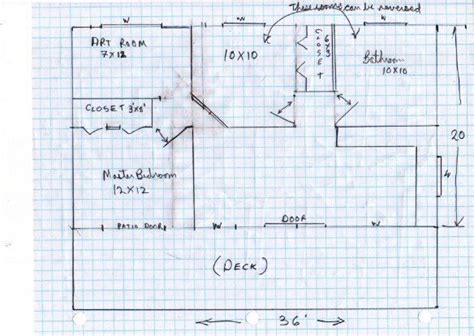 These rooms can be reversed
W
W
W
ART ROOM
7X12
10X10
CLOSET
6X3
Bathroom
10X10
CLOSET 3'X8'
20
Master Bedroom
12X12
4
PATIO DOOR
W
DOOR
W
(DECK)
36'